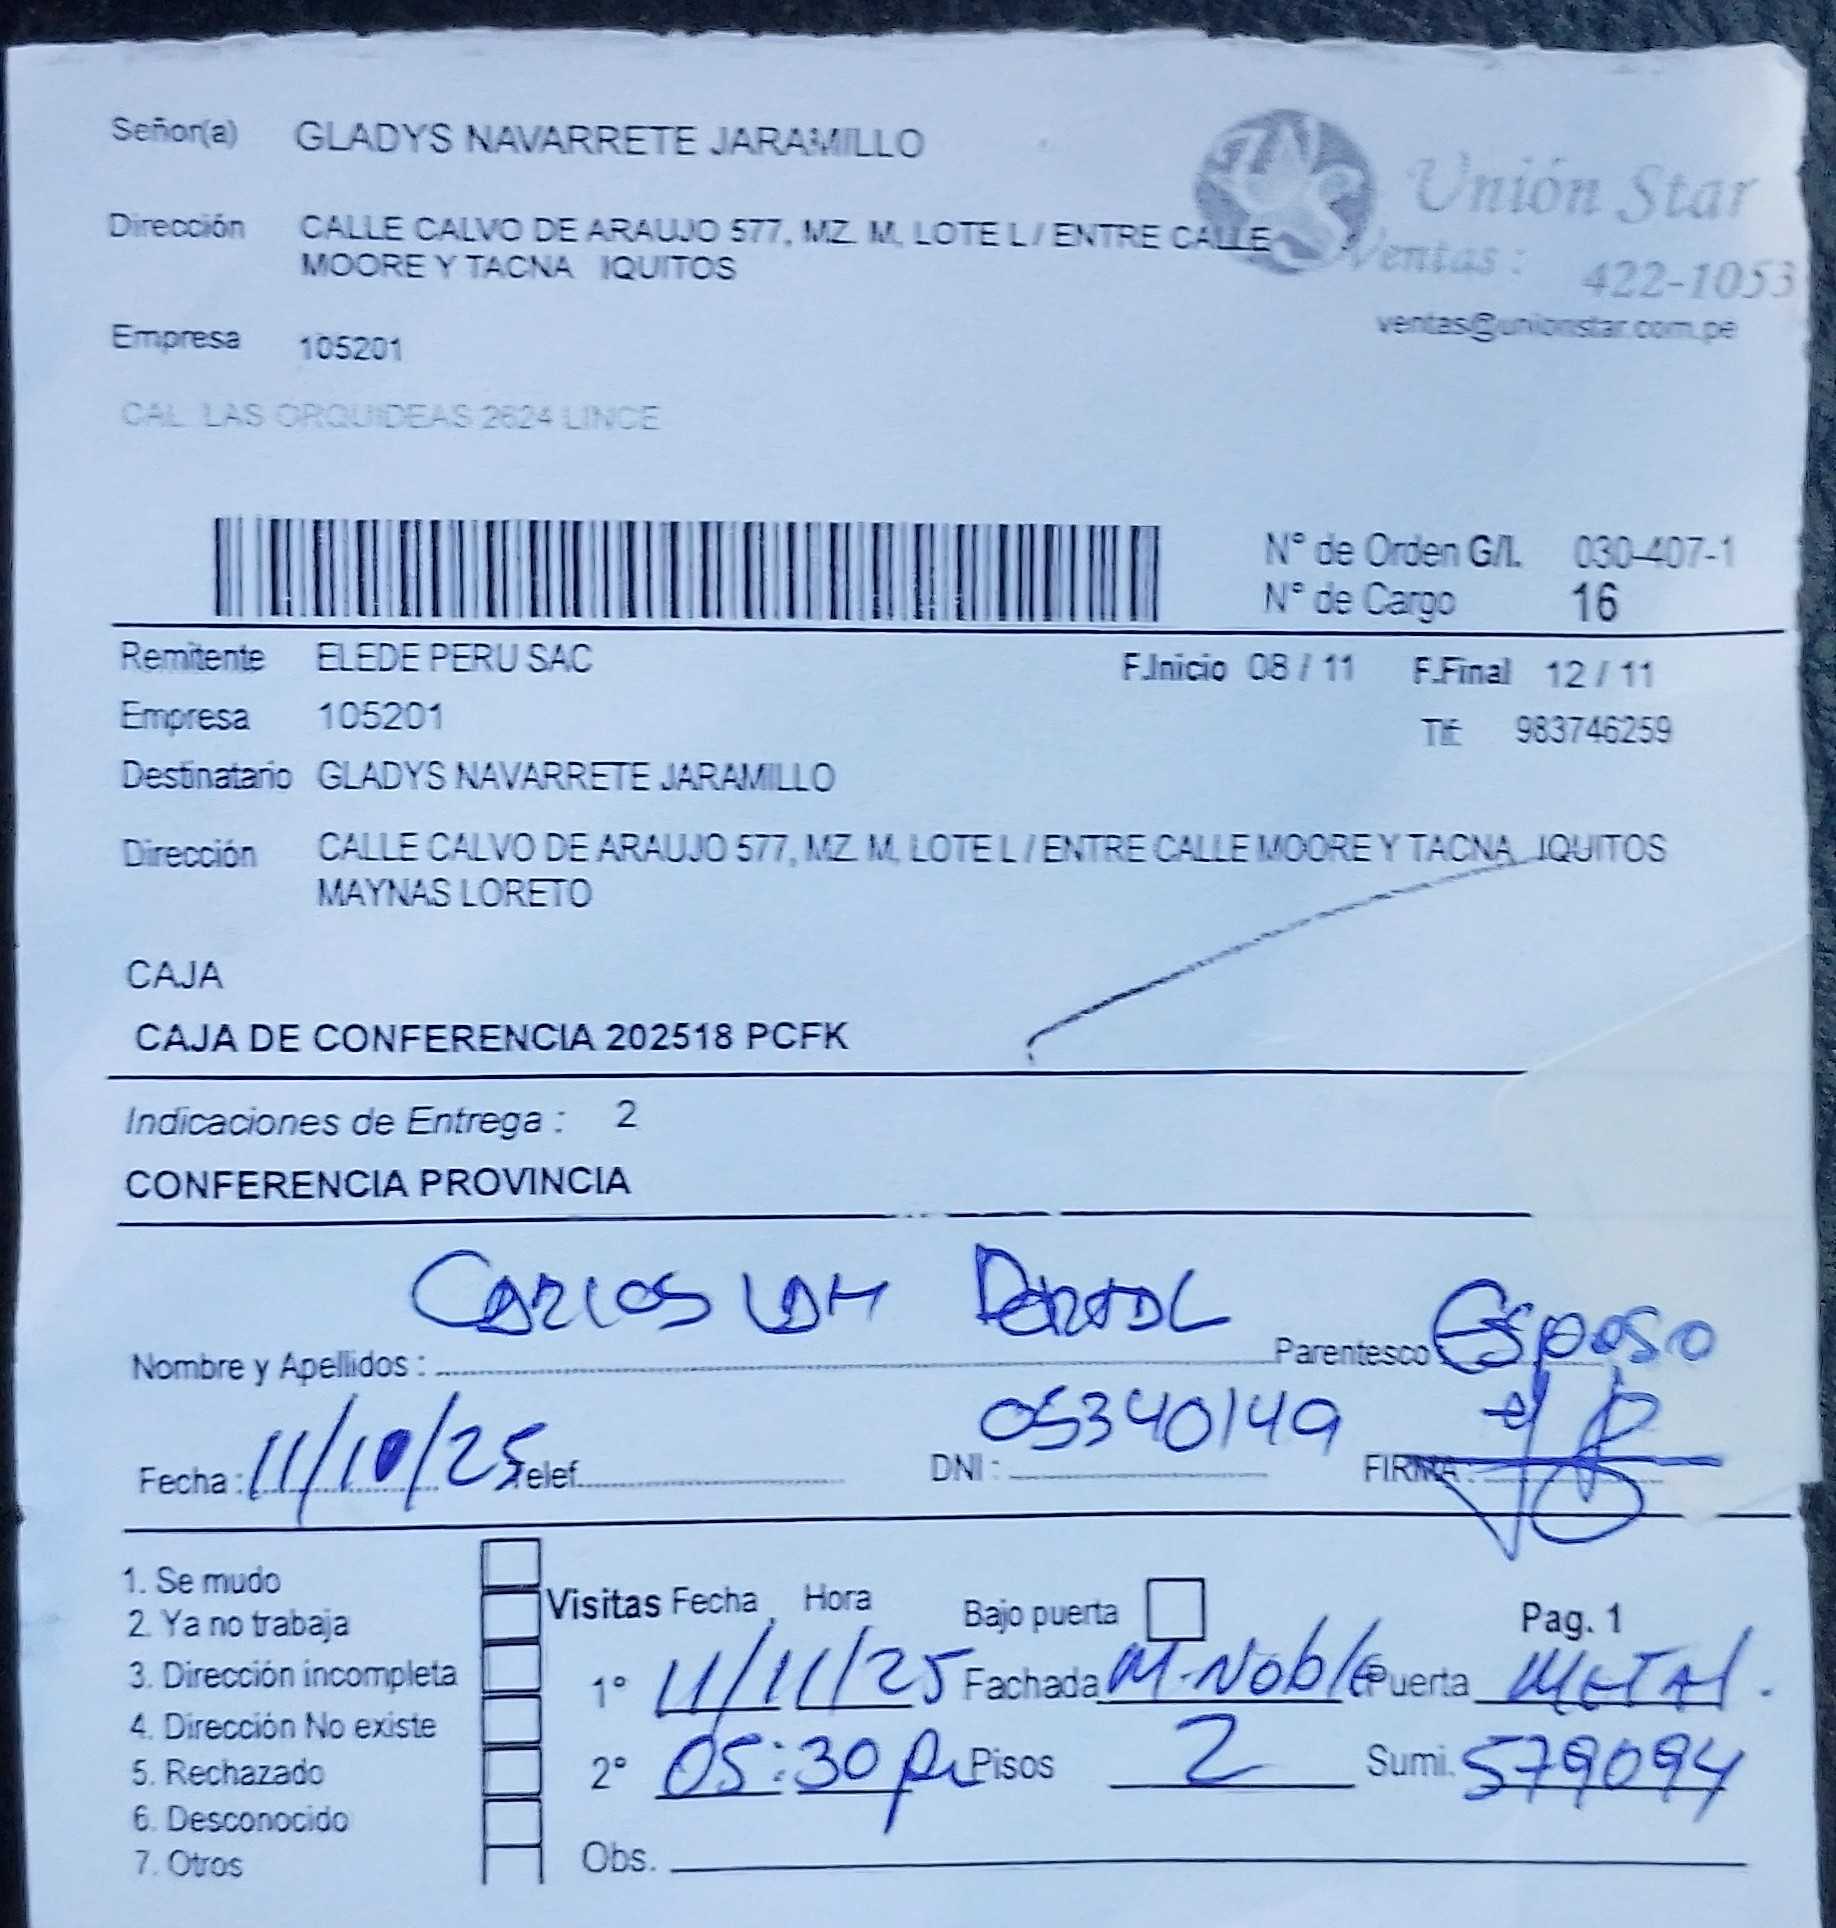 Señor(a) GLADYS NAVARRETE JARAMILLO
Unión Star
Dirección CALLE CALVO DE ARAUJO 577, MZ. M, LOTE L / ENTRE CALLE
MOORE Y TACNA IQUITOS
Ventas : 422-1053
ventas@unionstar.com.pe
Empresa 105201
CAL. LAS ORQUIDEAS 2624 LINCE
N° de Orden G/I. 030-407-1
N° de Cargo 16
Remitente ELEDE PERU SAC F.Inicio 08 / 11 F.Final 12 / 11
Empresa 105201 Tlf: 983746259
Destinatario GLADYS NAVARRETE JARAMILLO
Dirección CALLE CALVO DE ARAUJO 577, MZ. M, LOTE L / ENTRE CALLE MOORE Y TACNA IQUITOS
MAYNAS LORETO
CAJA
CAJA DE CONFERENCIA 202518 PCFK
Indicaciones de Entrega : 2
CONFERENCIA PROVINCIA
Nombre y Apellidos : CARLOS Parentesco Esposo
Fecha : 11/10/25 Telef. DNI : 05340149 FIRMA :
1. Se mudo
2. Ya no trabaja
3. Dirección incompleta
4. Dirección No existe
5. Rechazado
6. Desconocido
7. Otros
Visitas Fecha Hora Bajo puerta Pag. 1
1° 11/11/25 Fachada M. Noble Puerta METAL.
2° 05:30 Pisos 2 Sumi. 579094
Obs.